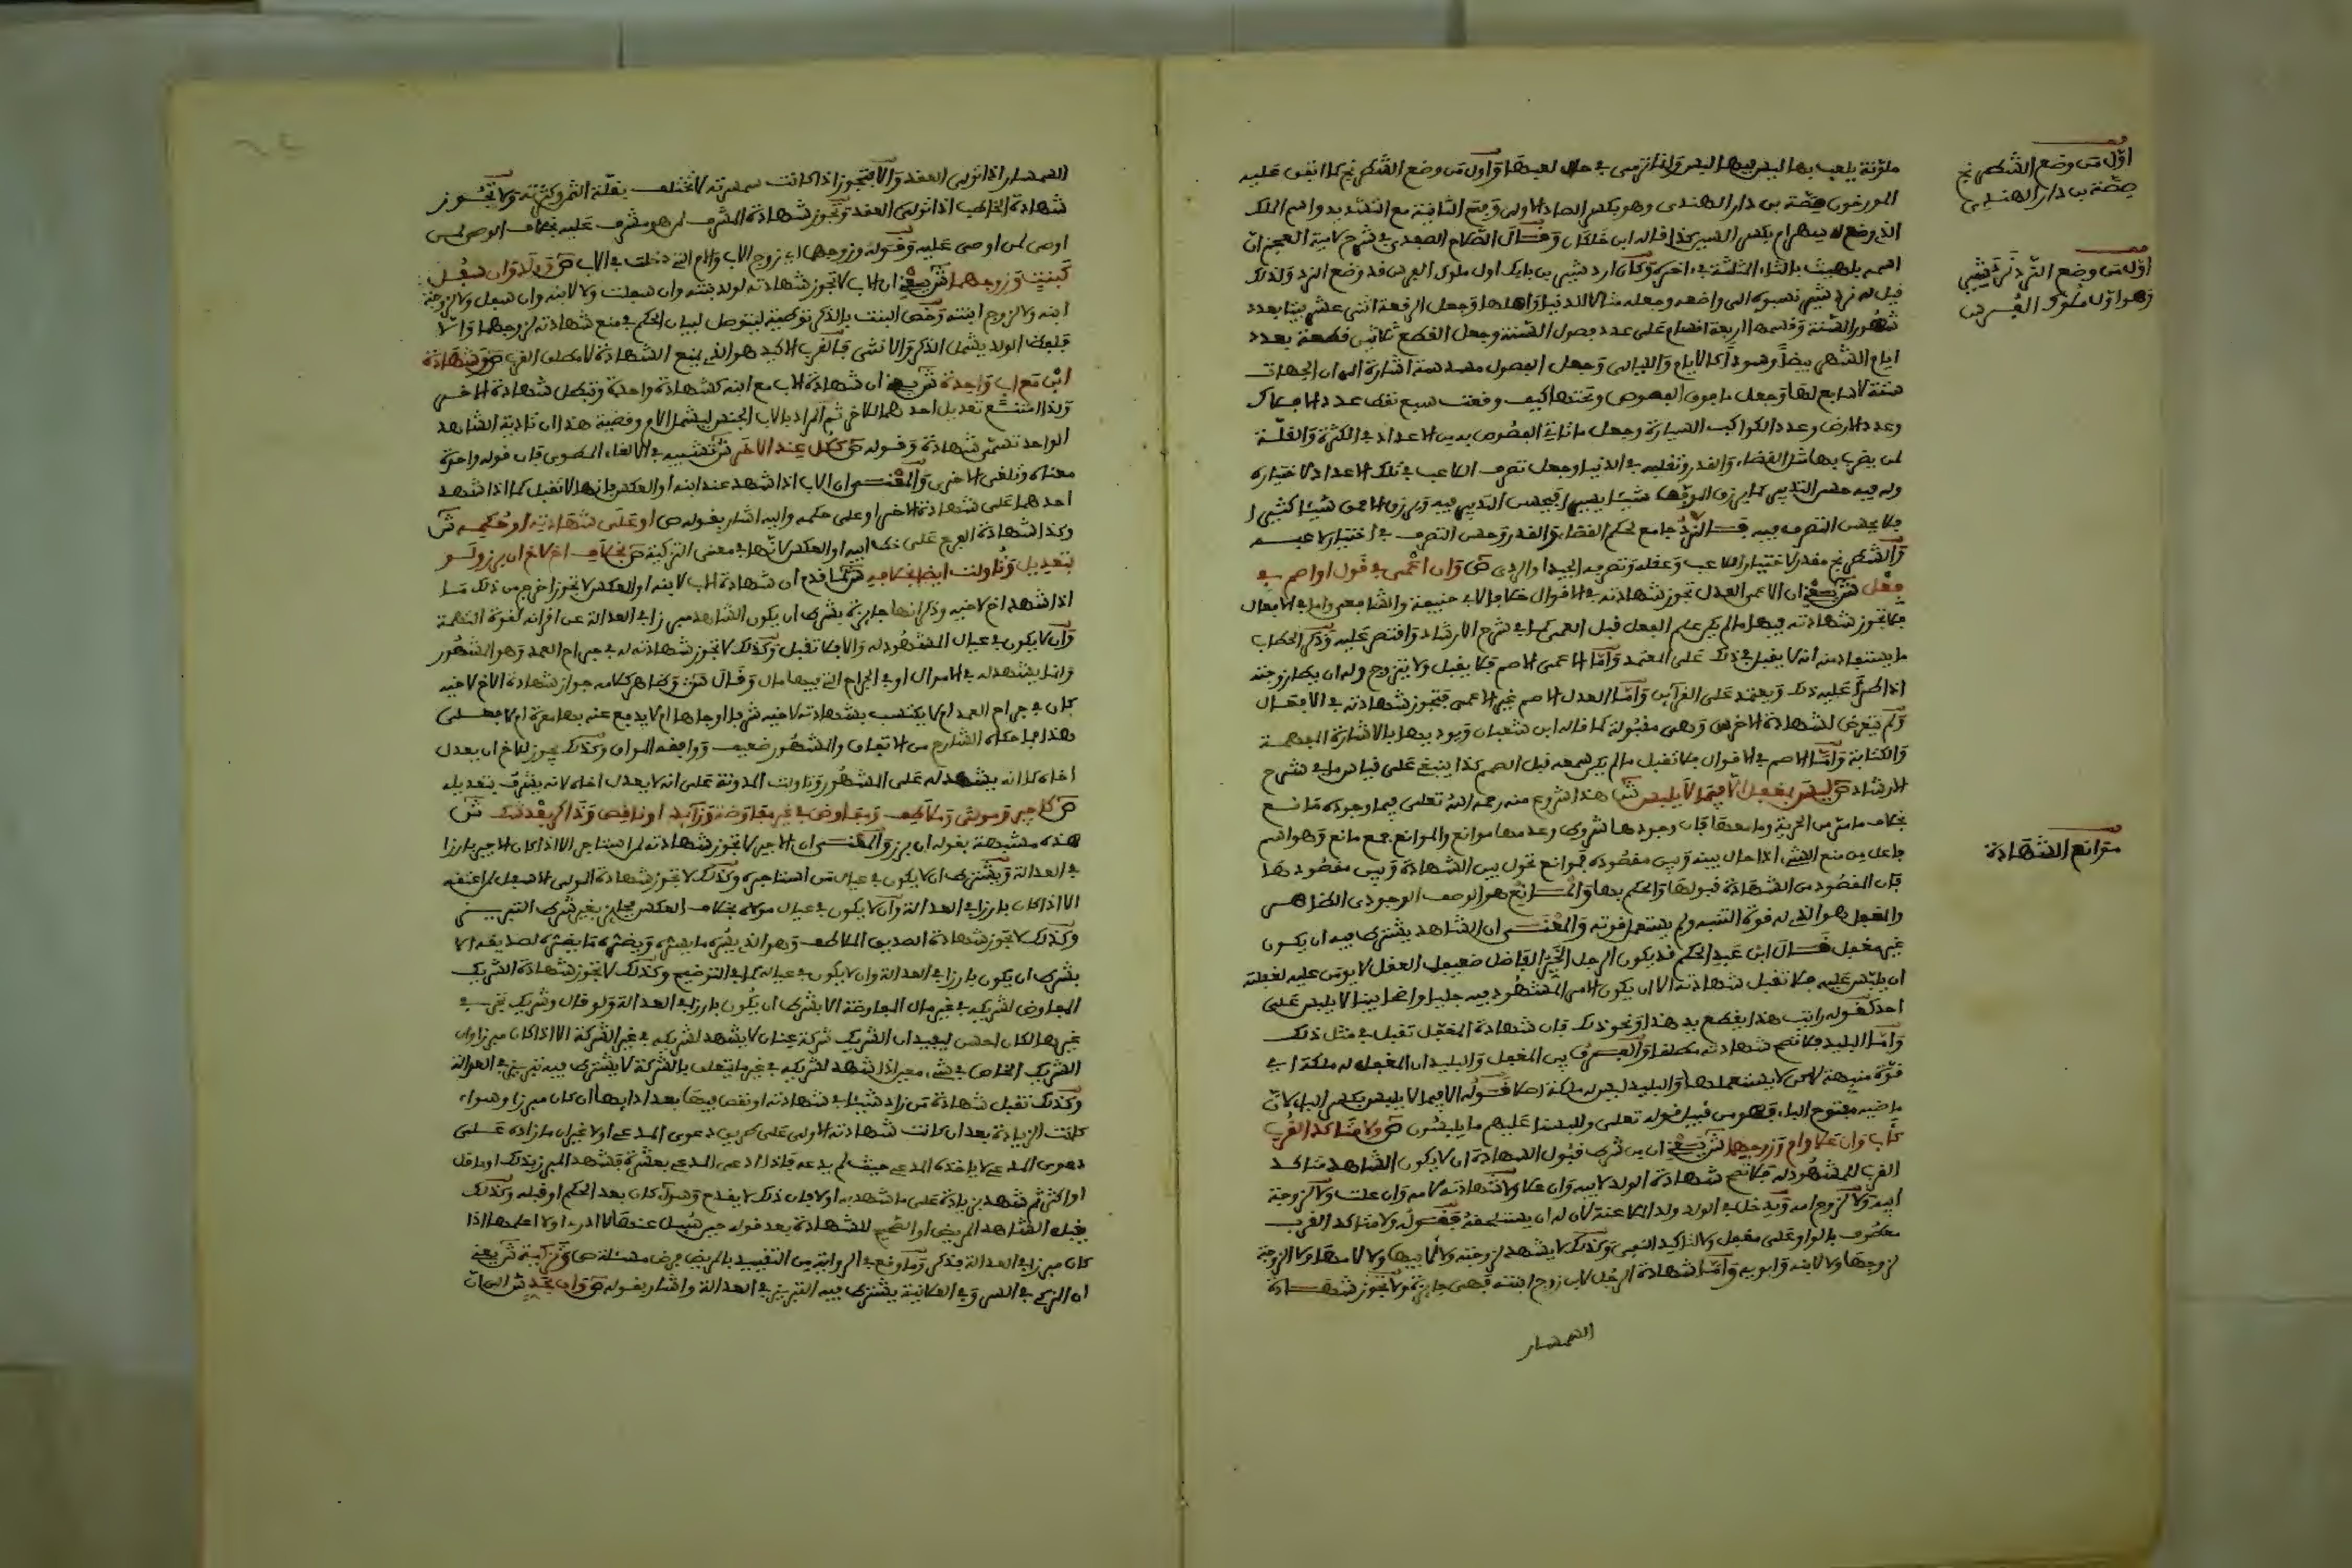 ملونة يلعب بها ليس فيها كيس وإنما ترمى في حال لعبها وأول من وضع الشطرنج كما اتفق عليه
المورخون صصة بن دار الهندي وهو بكسر الصاد الأولى وفتح الثانية مع التشديد واسم الملك
الذي وضع له شهرام بكسر الشين كذا قاله ابن خلكان وقال الصلاح الصفدي في شرح لامية العجم ان
اسمه بلهيث بالثاء المثلثة في اخره وكان اردشير بن بابك اول ملوك الفرس قد وضع النرد ولذلك
قيل له نردشير نسبوه الى واضعه وجعله مثالا للدنيا واهلها وجعل الرقعة اثنى عشر بيتا بعدد
شهور السنة وقسمها اربعة اقسام على عدد فصول السنة وجعل القطع ثلاثين قطعة بعدد
ايام الشهر بيضا وسودا كالايام والليالي وجعل الفصوص مسدسة اشارة الى ان الجهات
ستة لا سابع لها وجعل ما فوق الفصوص وتحتها كيف وقعت سبع نقط عدد الافلاك
وعدد الارض وعدد الكواكب السيارة وجعل ما تاتي الفصوص به من الاعداد في الكثرة والقلة
لمن يضرب بها مثل القضاء والقدر وتقلبه في الدنيا وجعل تصرف اللاعب في تلك الاعداد لاختياره
وله فيه حسن التدبير كما يرزق الموفق شيئا يسيرا فيحسن التدبير فيه ويرزق الاحمق شيئا كثيرا
فلا يحسن التصرف فيه فالنرد جامع لحكم القضاء والقدر وحسن التصرف في اختيار لاعبه
والشطرنج مقدر لاختيار اللاعب وعقله وتصرفه الجيد او الردي ص وان اعمى في قول او اصم في
فعل ش يعني ان الاعمى العدل تجوز شهادته في الاقوال خلافا لابي حنيفة والشافعي واما في الافعال
فلا تجوز شهادته فيها ما لم يكن علم الفعل قبل العمى كما في شرح الارشاد واقتصر عليه وذكر الحطاب
ما يستفاد منه انه لا يقبل في ذلك على المعتمد واما الاعمى الاصم فلا يقبل ولا يتزوج وله ان يطا زوجته
اذا طرا عليه ذلك ويعتمد على القرائن واما العدل الاصم غير الاعمى فتجوز شهادته في الافعال
ولم يتعرض لشهادة الاخرس وهي مقبولة كما قاله ابن شعبان ويوديها بالاشارة المفهمة
والكتابة واما الاصم في الاقوال فلا تقبل ما لم يكن سمعه قبل الصمم كذا ينبغي على قياس ما في شرح
الارشاد ص ليس بمغفل الا فيما لا يلبس ش هذا شروع منه رحمه الله تعلى فيما وجوده مانع
بخلاف ما مر من الحرية وما معها فان وجودها شروط وعدمها موانع والموانع جمع مانع وهو اسم
فاعل من منع الشيء اذا حال بينه وبين مقصوده فموانع تحول بين الشهادة وبين مقصودها
فان المقصود من الشهادة قبولها والحكم بها والمانع هو الوصف الوجودي الظاهر
والمغفل هو الذي له قوة التنبه ولم يستعمل قوته والمعنى ان الشاهد يشترط فيه ان يكون
غير مغفل قال ابن عبد الحكم قد يكون الرجل الخير الفاضل ضعيف العقل لا يومن عليه لغفلته
ان يلبس عليه فلا تقبل شهادته الا ان يكون الامر المشهود فيه جليا واضحا بينا لا يلبس على
احد كقوله رايت هذا يقطع يد هذا ونحو ذلك فان شهادة المغفل تقبل في مثل ذلك
واما البليد فلا تصح شهادته مطلقا والفرق بين المغفل والبليد ان المغفل له ملكة اي
قوة منبهة لاكن لا يستعملها والبليد ليس له ملكة اصلا قوله الا فيما لا يلبس بكسر الباء لان
ماضيه مفتوح الباء فهو من قبيل قوله تعلى وللبسنا عليهم ما يلبسون ص ولا متاكد القرب
كاب وان علا وام وزوجهما ش يعني ان من شرط قبول الشهادة ان لا يكون الشاهد متاكد
القرب للمشهود له فلا تصح شهادة الولد لابيه وان علا ولا شهادته لامه وان علت ولا لزوجة
ابيه ولا لزوج امه ويدخل في الولد ولد الملاعنة لان له ان يستلحقه فقوله ولا متاكد القرب
معطوف بالواو على مغفل ولا لتاكيد النفي وكذلك لا يشهد لزوجته ولا لابيها ولا لامها ولا الزوجة
لزوجها ولا لابنه وابويه واما شهادة الرجل لاب زوج ابنته فهي جائزة ولا تجوز شهادة
السمسار
اول من وضع الشطرنج
صصة بن دار الهندي
اول من وضع النرد نردشير
وهو اول ملوك الفرس
موانع الشهادة
السمسار اذا تولى العقد والا فتجوز اذا كانت سمسرته لا تختلف بقلة الثمر وكثرته ولا تجوز
شهادة الخاطب اذا تولى العقد وتجوز شهادة المشرف لمن هو مشرف عليه بخلاف الوصي ليس
اوصى لمن اوصى عليه وقوله وزوجهما اي زوج الاب والام التي دخلت في الاب ص وولد وان سفل
كبنت وزوجهما ش يعني ان الاب لا تجوز شهادته لولد بنته وان سفلت ولا لابنه وان سفل ولا لزوجة
ابنه ولا لزوج ابنته وخص البنت بالذكر توطية ليتوصل لبيان الحكم في منع شهادته لزوجهما والا
فلفظ الولد يشمل الذكر والانثى فالقرب الاكيد هو الذي يمنع الشهادة لا مطلق القرب ص وشهادة
ابن مع اب واحدة ش يعني ان شهادة الاب مع ابنه كشهادة واحدة وتبطل شهادة الاخر
ولذا امتنع تعديل احدهما للاخر ثم المراد بالاب الجنس ليشمل الام وقضية هذا ان تادية الشاهد
الواحد تسمى شهادة وقوله ص ككل عند الاخر ش تشبيه في الالغاء المطوي فان قوله واحدة
معناه وتلغى الاخرى والمعنى ان الاب اذا شهد عند ابنه او العكس فانها لا تقبل كما اذا شهد
احدهما على شهادة الاخر او على حكمه واليه اشار بقوله ص او على شهادته او حكمه ش
وكذا شهادة الفرع على خط ابيه او العكس لانها في معنى التزكية ص بخلاف اخ لاخ ان برز ولو
بتعديل وتاولت ايضا بخلافه ش لما قدم ان شهادة الاب لابنه او العكس لا تجوز اخرج من ذلك ما
اذا شهد اخ لاخيه وذكر انها جائزة بشرط ان يكون الشاهد مبرزا في العدالة عن اقرانه لقوة التهمة
وان لا يكون في عيال المشهود له والا فلا تقبل وكذلك لا تجوز شهادته له في جراح العمد وهو المشهور
وانما يشهد له في الاموال او في الجراح التي فيها مال وقال تت وظاهر كلامه جواز شهادة الاخ لاخيه
كان في جراح العمد ام لا يكتسب بشهادته لاخيه شرفا او جاها ام لا يدفع عنه بها معرة ام لا فعلى
هذا ما حكاه الشارح من الاتفاق والمشهور ضعيف ووافقه المواق وكذلك يجوز للاخ ان يعدل
اخاه كما انه يشهد له على المشهور وتاولت المدونة على انه لا يعدل اخاه لانه يشرف بتعديله
ص كاجير ومولى وملاطف ومفاوض في غير مفاوضة وزائد او ناقص وذاكر بعد شك ش
هذه مشبهة بقوله ان برز والمعنى ان الاجير لا تجوز شهادته لمن استاجره الا اذا كان الاجير بارزا
في العدالة ويشترط ان لا يكون في عيال من استاجره وكذلك لا تجوز شهادة المولى الاسفل لمن اعتقه
الا اذا كان بارزا في العدالة وان لا يكون في عيال مولاه بخلاف العكس فجائز بغير شرط التبريز
وكذلك لا تجوز شهادة الصديق الملاطف وهو الذي يسره ما يسره ويضره ما يضره لصديقه الا
بشرط ان يكون بارزا في العدالة وان لا يكون في عياله كما في التوضيح وكذلك لا تجوز شهادة الشريك
المفاوض لشريكه في غير مال المفاوضة الا بشرط ان يكون بارزا في العدالة ولو قال وشريك تجر في
غيرها لكان احسن ليفيد ان الشريك شركة عنان لا يشهد لشريكه في غير الشركة الا اذا كان مبرزا وان
الشريك الخاص في شيء معين اذا شهد لشريكه في غير ما يتعلق بالشركة لا يشترط فيه تبريز في العدالة
وكذلك تقبل شهادة من زاد شيئا في شهادته او نقص فيها بعد ادايها ان كان مبرزا وسواء
كانت الزيادة بعد ان كانت شهادته الاولى على طبق دعوى المدعي او لا غير ان ما زاده على
دعوى المدعي لا ياخذه المدعي حيث لم يدعه فاذا ادعى المدعي بعشرة فشهد المبرز بذلك او باقل
او اكثر ثم شهد بزيادة على ما شهد به اولا فان ذلك لا يقدح وسواء كان بعد الحكم او قبله وكذلك
يقبل الشاهد المريض او الصحيح للشهادة بعد قوله حين سئل عنها لا ادري او لا اعلمها اذا
كان مبرزا في العدالة فتذكر وما وقع في الرواية من التقييد بالمريض فرض مسئلة ص وتزكية ش يعني
ان المزكي في السر وفي العلانية يشترط فيه التبريز في العدالة واشار بقوله ص وان بحد ش الى ان